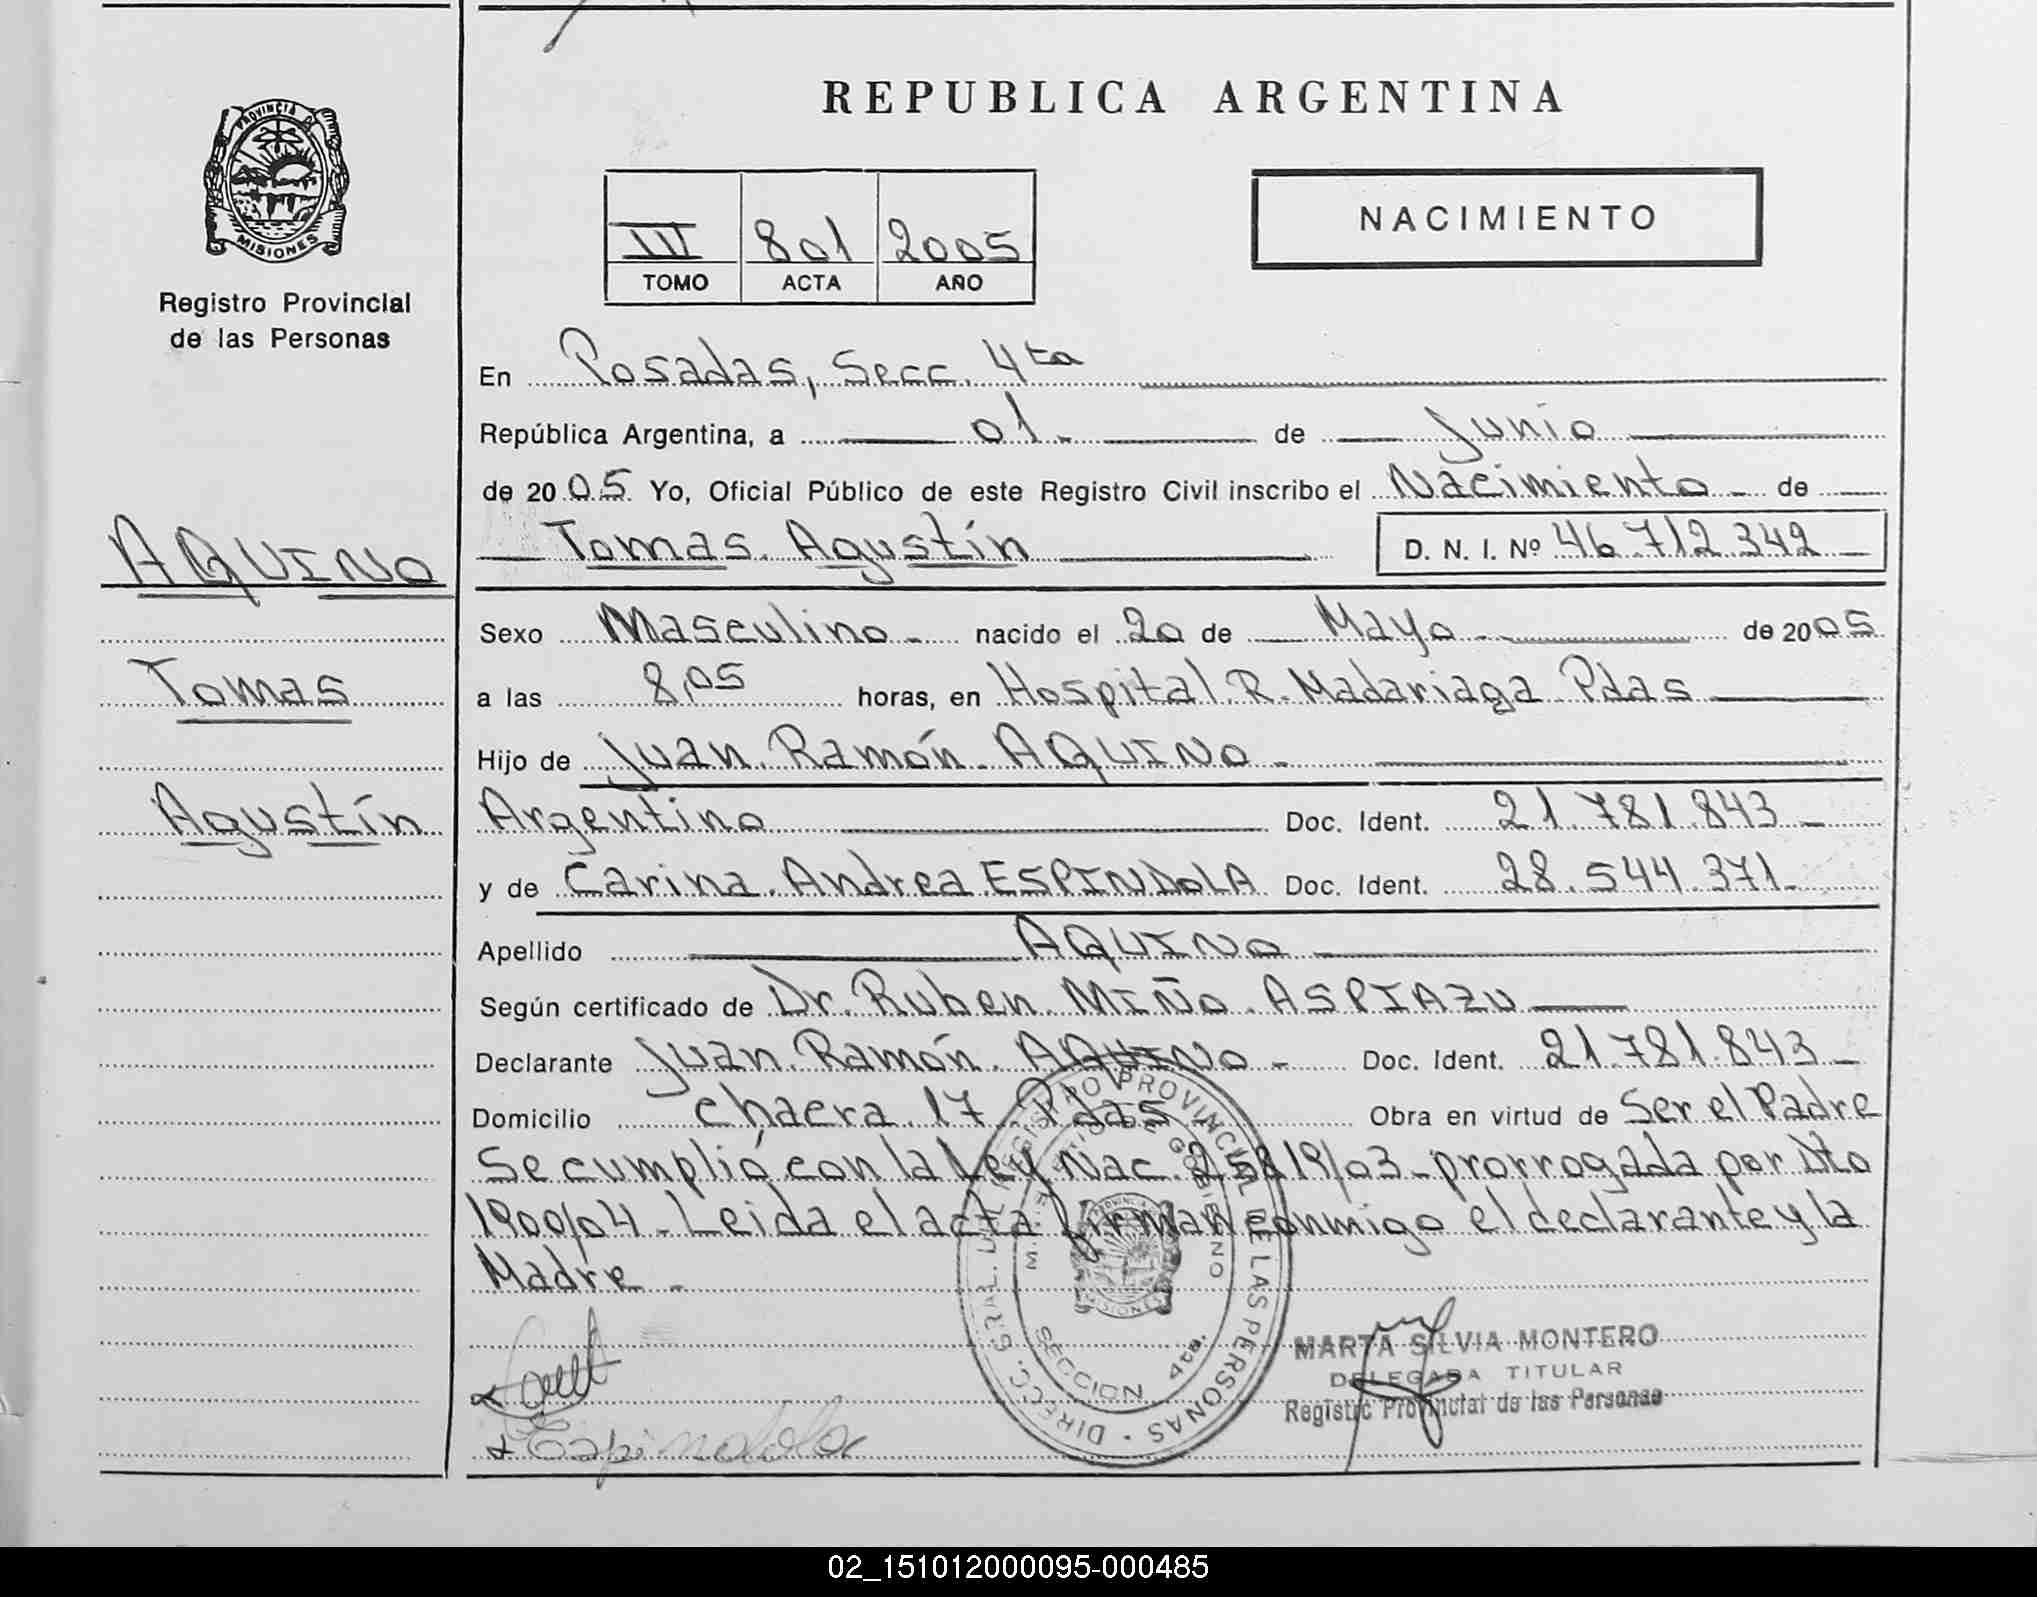 REPUBLICA ARGENTINA
PROVINCIA DE
MISIONES
Registro Provincial
de las Personas
III 801 2005
TOMO ACTA AÑO
NACIMIENTO
En Posadas, Secc. 4ta
República Argentina, a 01 de Junio
de 2005 Yo, Oficial Público de este Registro Civil inscribo el Nacimiento de
Tomas Agustín D. N. I. Nº 46.712.342
AQUINO
Tomas
Agustín
Sexo Masculino nacido el 20 de Mayo de 2005
a las 8,05 horas, en Hospital R. Madariaga Pdas
Hijo de Juan Ramón AQUINO
Argentino Doc. Ident. 21.781.843
y de Carina Andrea ESPINDOLA Doc. Ident. 28.544.371
Apellido AQUINO
Según certificado de Dr. Ruben MIÑO ASPIAZU
Declarante Juan Ramón AQUINO Doc. Ident. 21.781.843
Domicilio chacra 17 Pdas Obra en virtud de Ser el Padre
Se cumplió con la Ley Nac. 25819/03 - prorrogada por Dto
1900/04 - Leida el acta firman conmigo el declarante y la
Madre -
Espindola
DIRECC. GRAL. DEL REGISTRO PROVINCIAL DE LAS PERSONAS
GOBIERNO
MISIONES
SECCION 4ta.
MARTA SILVIA MONTERO
DELEGADA TITULAR
Registro Provincial de las Personas
02_151012000095-000485